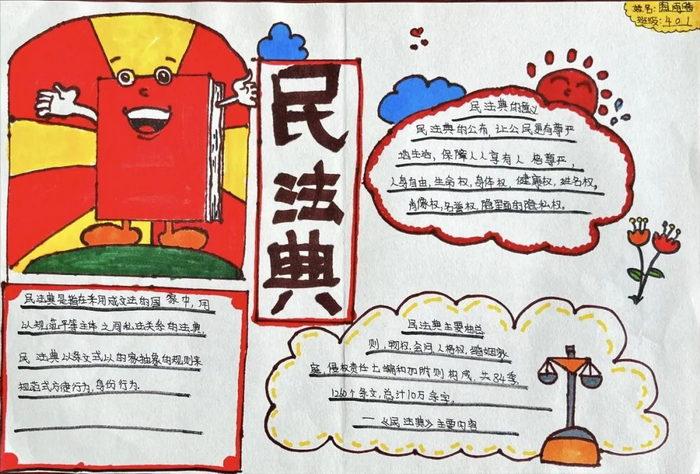 姓名:
班级:401
民法典
民法典的意义
民法典的公布，让公民更有尊严
地生活，保障人人享有人格尊严，
人身自由，生命权，身体权，健康权，姓名权，
肖像权，名誉权，隐里面的隐私权。
民法典是指在采用成文法的国家中，用
以规范平等主体之间私法关系的法典
民法典以条文式以的方抽象的规则来
规范式方便行为，身份行为.
民法典主要由总
则，物权，合同，人格权，婚姻家
庭，侵权责任七编和附则构成，共84章，
1260个条文，总计10万余字，
一《民法典》主要内容